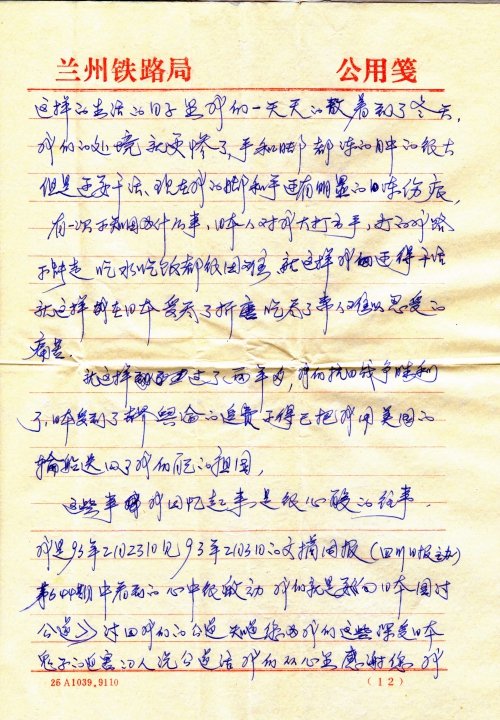 兰州铁路局 公用笺
这样的生活的日子是我们一天天的数着到了冬天,
我们的处境就更惨了,手和脚都冻的肿的很大
但是还要干活、现在我的脚和手还有明显的冻伤痕,
有一次不知因为什么事,日本人对我大打出手,打的我路
不能走 吃水吃饭都很困难 就这样我们还得干活
就这样我在日本受尽了折磨 吃尽了事人难以忍受的
痛苦.
就这样 过了两年多,我们抗日战争胜利
了,日本受到了世界舆论的追责 不得已把我用美国的
轮船送回了我们的祖国,
这些事 我回忆起来是很心酸的往事.
我是93年2月23日见93年2月3日的文摘周报(四川日报主办)
第644期中看到的 心中很激动 我们就是要向日本国讨
公道》 讨回我们的公道 知道您为我们的这些深受日本
鬼子的迫害的人说公道话 我们从心里感谢您 我
26 A1039,9110 (12)